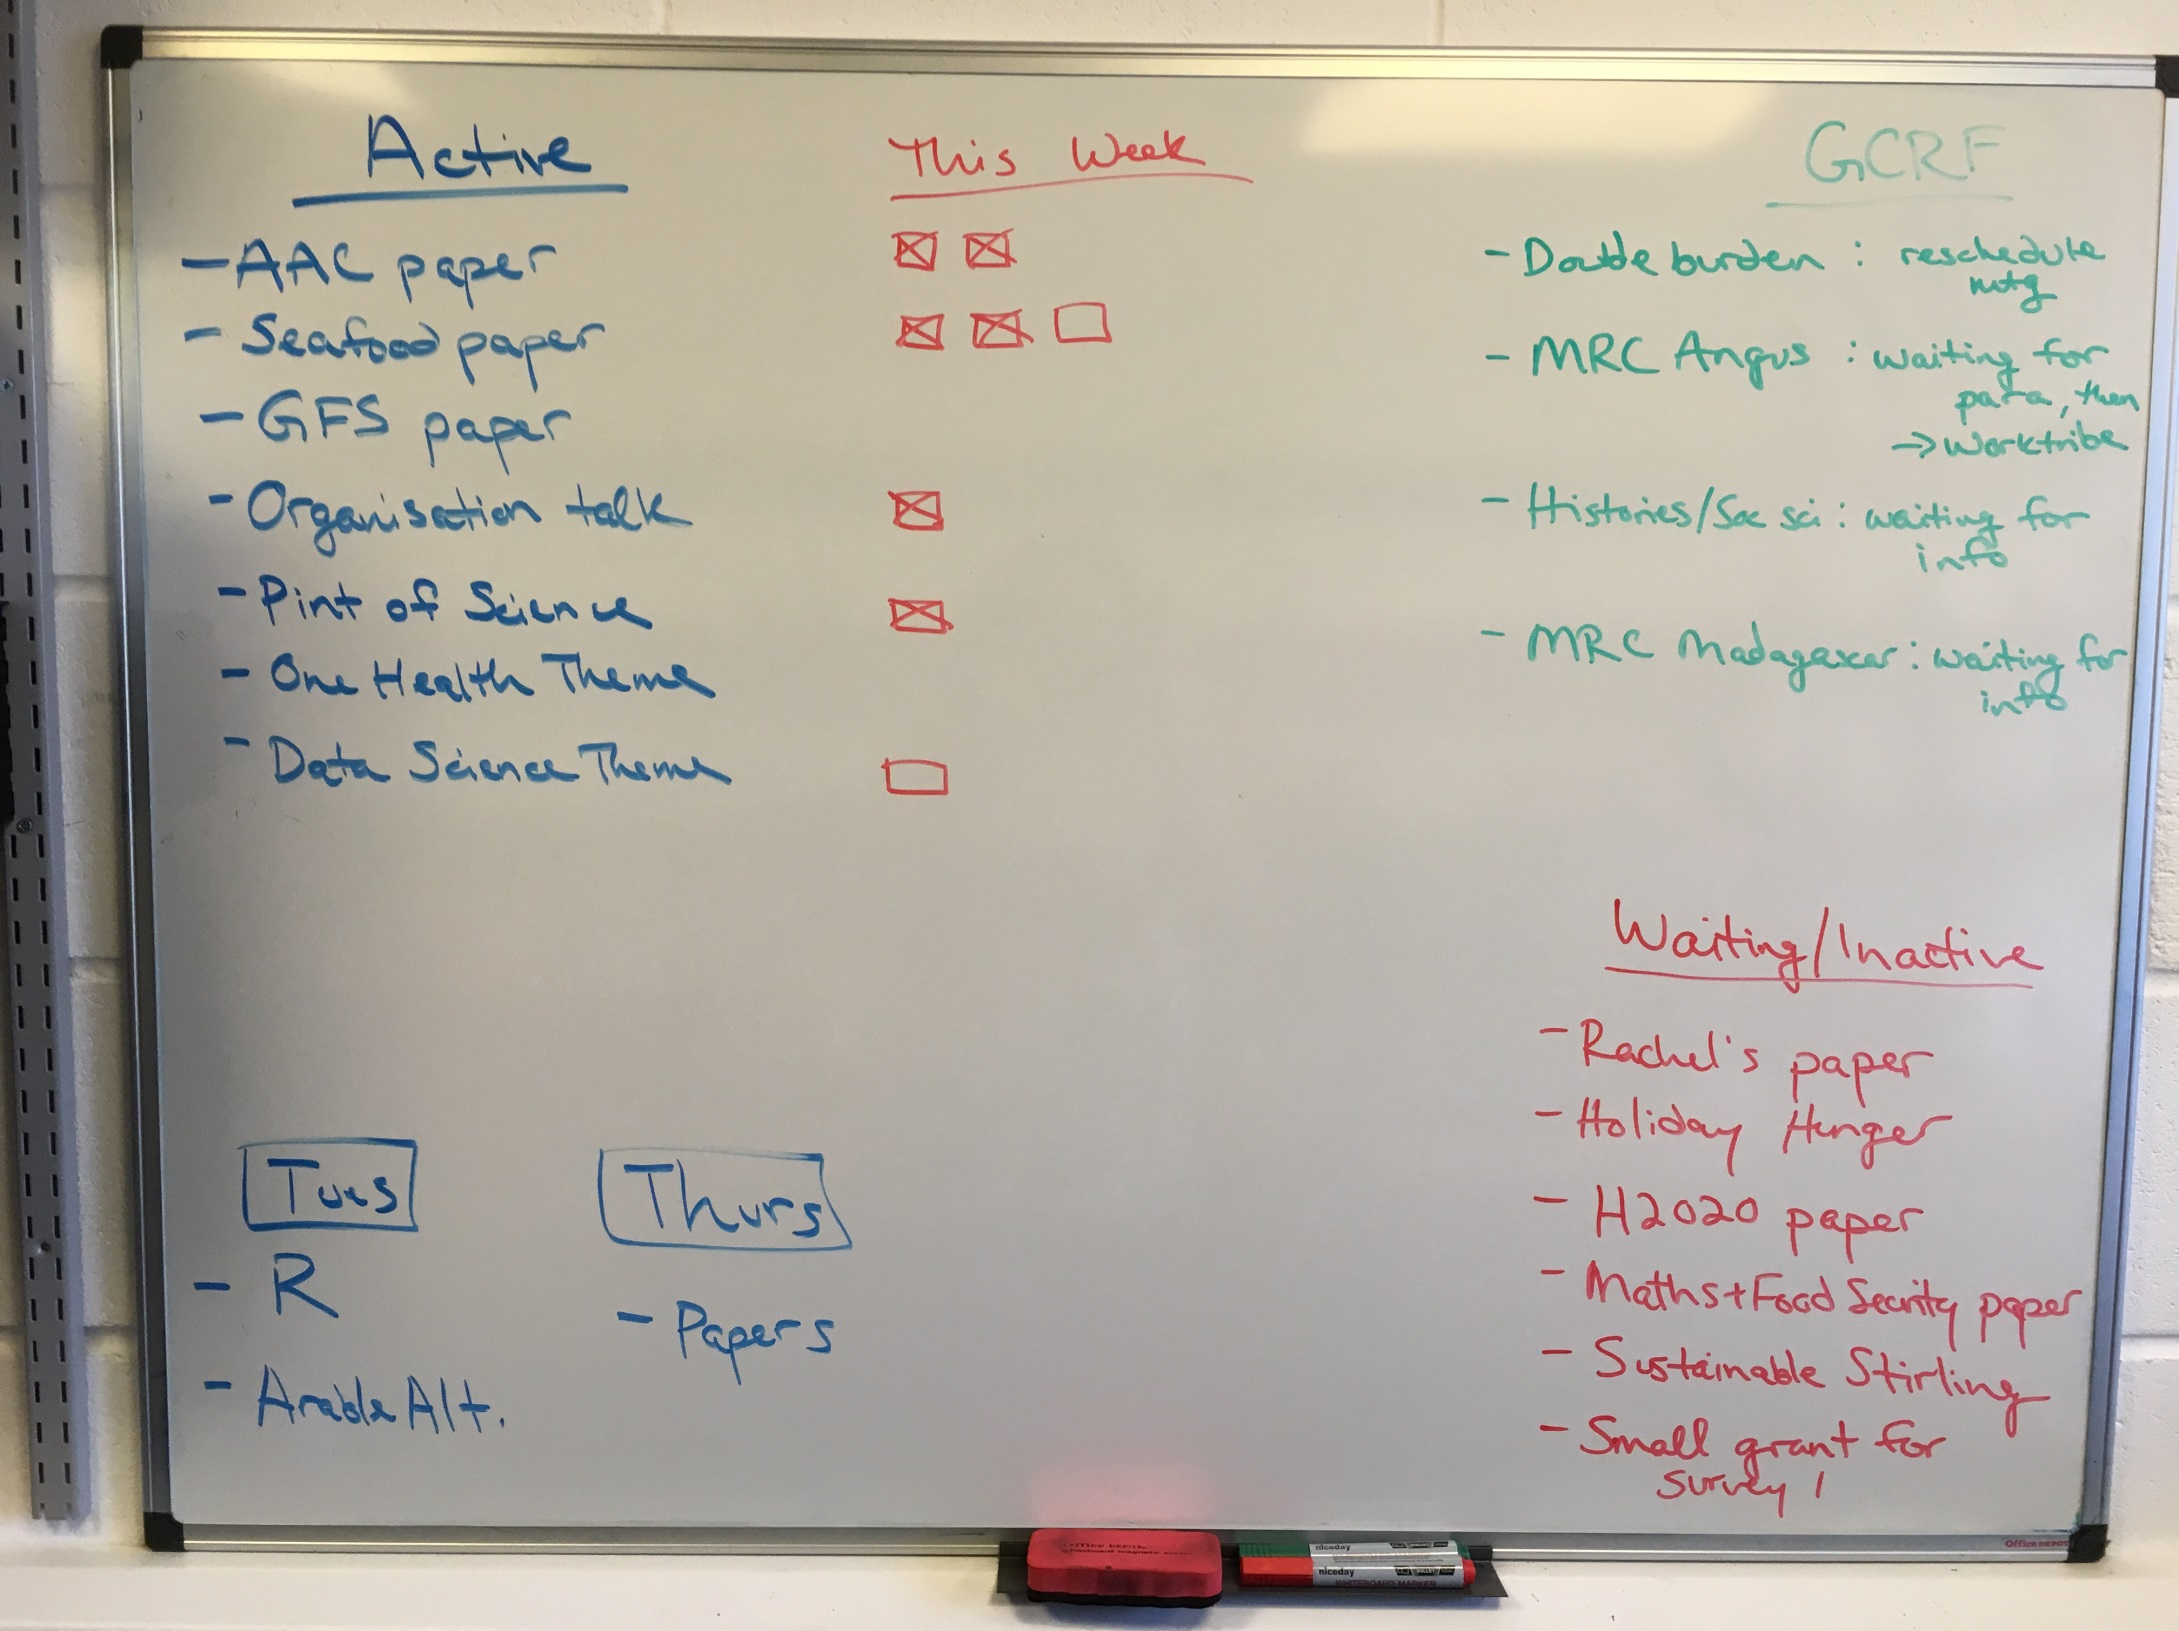 Active
- AAC paper
- Seafood paper
- GFS paper
- Organisation talk
- Pint of Science
- One Health Theme
- Data Science Theme
This Week
GCRF
- Double burden : reschedule
mtg
- MRC Angus : waiting for
para, then
→ Worktribe
- Histories/Soc sci : waiting for
info
- MRC Madagascar : waiting for
info
Waiting/Inactive
- Rachel's paper
- Holiday Hunger
- H2020 paper
- Maths+Food Security paper
- Sustainable Stirling
- Small grant for
survey 1
Tues
- R
- Arable Alt.
Thurs
- Papers
Office DEPOT
niceday
niceday
WHITEBOARD MARKER
Office DEPOT